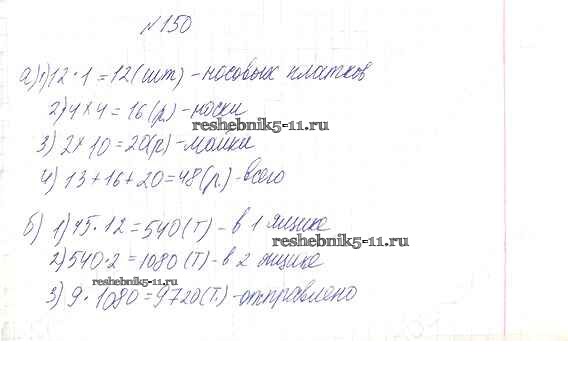 №150
а) 1) 12 · 1 = 12 (шт) - носовых платков
2) 4 × 4 = 16 (р.) - носки
reshebnik5-11.ru
3) 2 × 10 = 20 (р) - майки
4) 13 + 16 + 20 = 48 (р.) - всего
б) 1) 45 · 12 = 540 (т) - в 1 ящике
reshebnik5-11.ru
2) 540 · 2 = 1080 (т) - в 2 ящика
reshebnik5-11.ru
3) 9 · 1080 = 9720 (т.) - отправлено